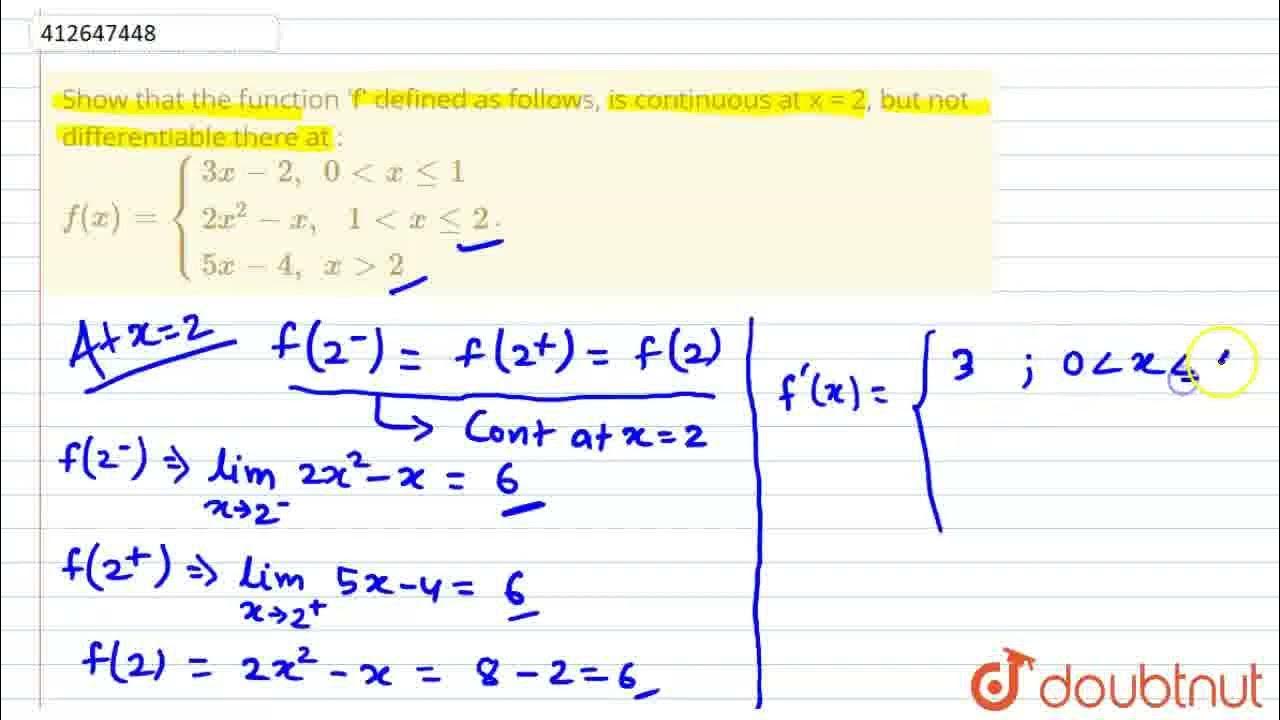 412647448
Show that the function 'f' defined as follows, is continuous at x = 2, but not
differentiable there at :
f(x) = { 3x − 2, 0 < x ≤ 1
2x² − x, 1 < x ≤ 2 .
5x − 4, x > 2
At x=2
f(2⁻) = f(2⁺) = f(2)
↳ Cont at x=2
f(2⁻) ⇒ lim 2x²−x = 6
x→2⁻
f(2⁺) ⇒ lim 5x−4 = 6
x→2⁺
f(2) = 2x² − x = 8 − 2 = 6
f'(x) = { 3 ; 0 < x ≤
doubtnut